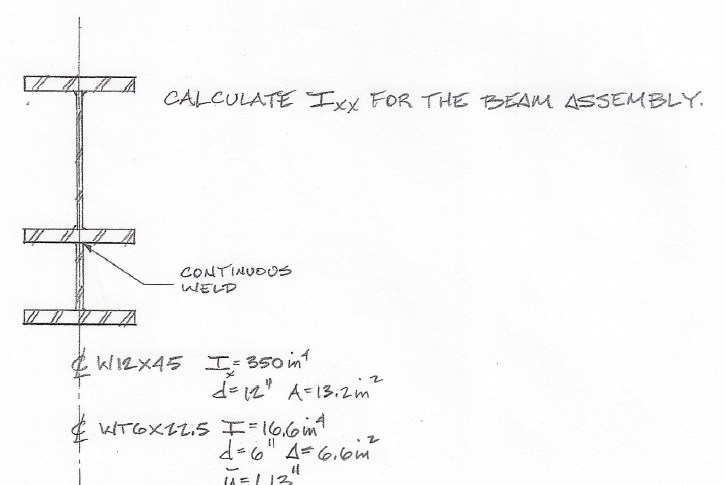 CALCULATE Ixx FOR THE BEAM ASSEMBLY.
CONTINUOUS
WELD
℄ W12X45 Ix=350in⁴
d=12" A=13.2in²
℄ WT6X22.5 I=16.6in⁴
d=6" A=6.6in²
ȳ=1.13"